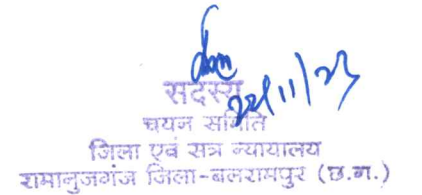 सदस्य
22/11/23
चयन समिति
जिला एवं सत्र न्यायालय
रामानुजगंज जिला-बलरामपुर (छ.ग.)